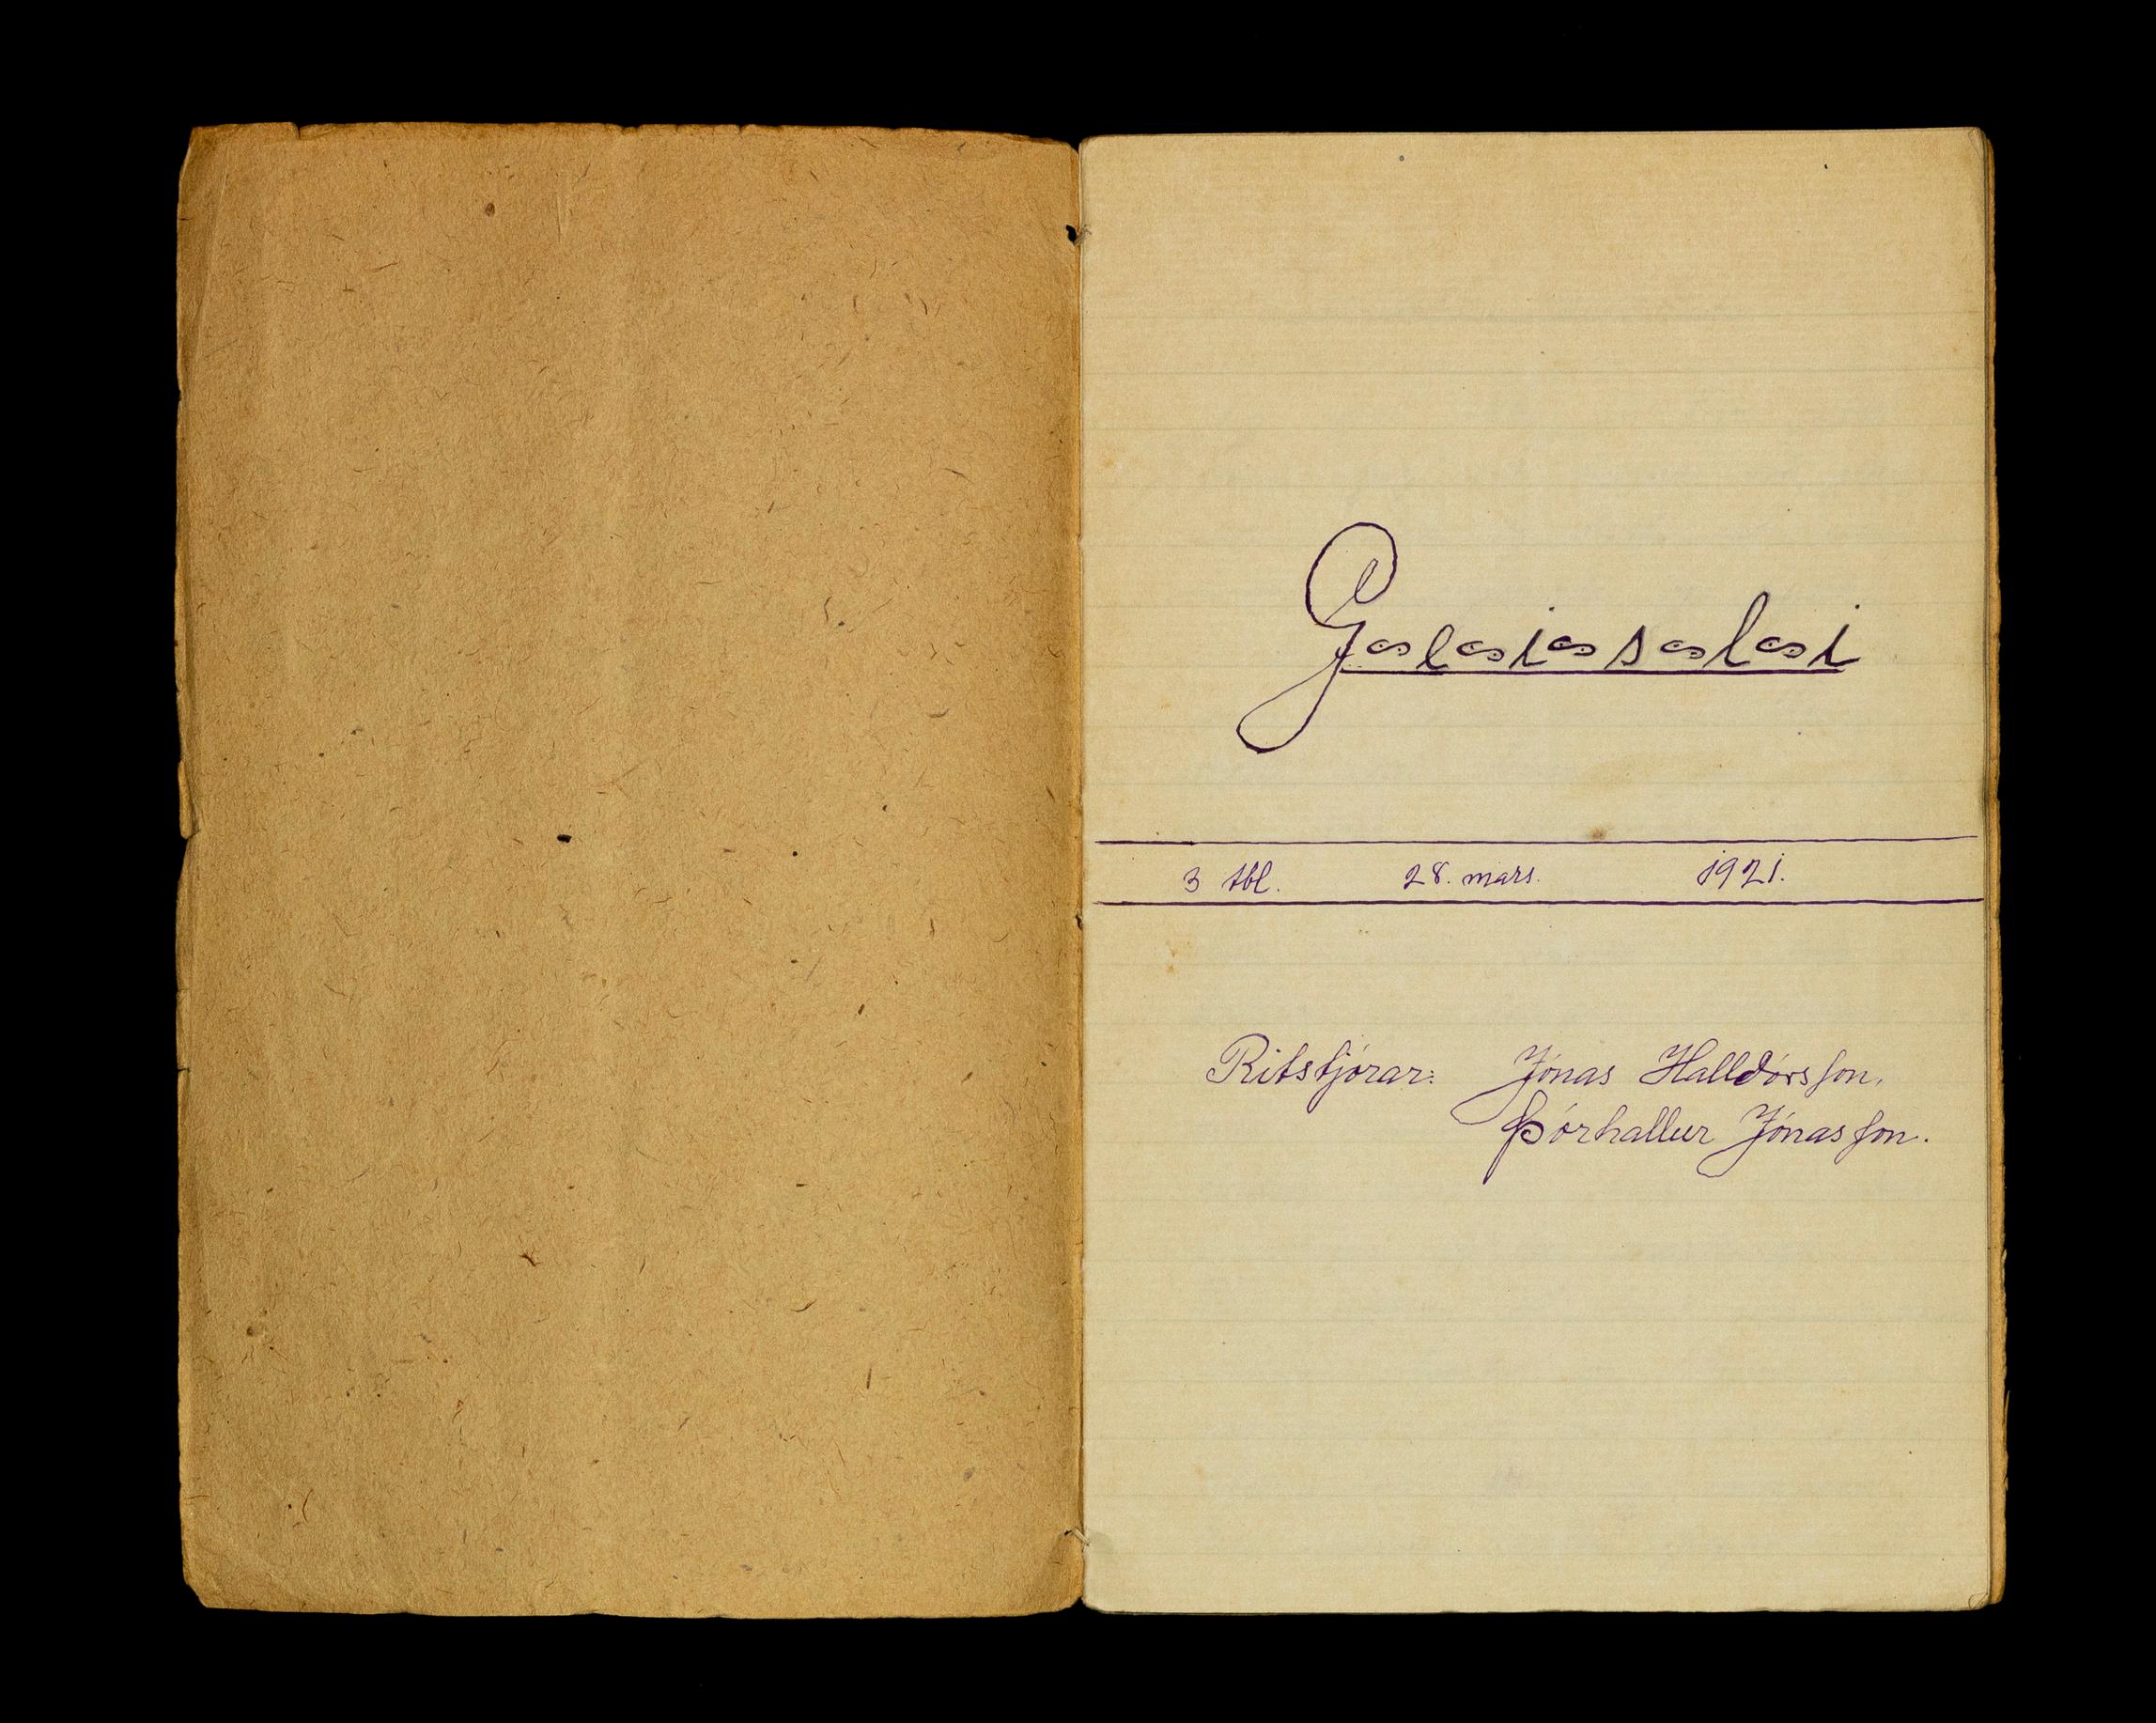 3 tbl. 28. mars. 1921.
Ritstjórar: Jónas Halldórsson.
Þórhallur Jónasson.